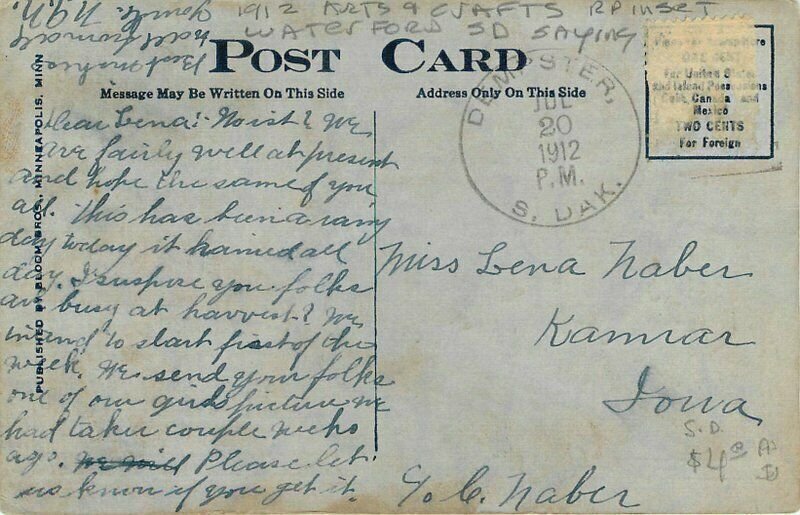 1912 ARTS & CRAFTS RP INSET
WATERFORD SD SAYING
POST CARD
Message May Be Written On This Side
Address Only On This Side
For United States
and Island Possessions
Cuba, Canada and
Mexico
TWO CENTS
For Foreign
DEMPSTER,
JUL
20
1912
P.M.
S. DAK.
PUBLISHED BY BLOOM BROS., MINNEAPOLIS, MINN
Dear Lena:- Moist? We
are fairly well at present
and hope the same of you
all. This has been a rainy
day today it rained all
day. I suspose you folks
are busy at harvest? We
intend to start first of the
week. We send your folks
one of our girls picture we
had taken couple weeks
ago. we will Please let
us know if you get it.
Best wishes
Yours. N.G.N.
Miss Lena Naber
Kamrar
Iowa
c/o C. Naber
S.D.
$4